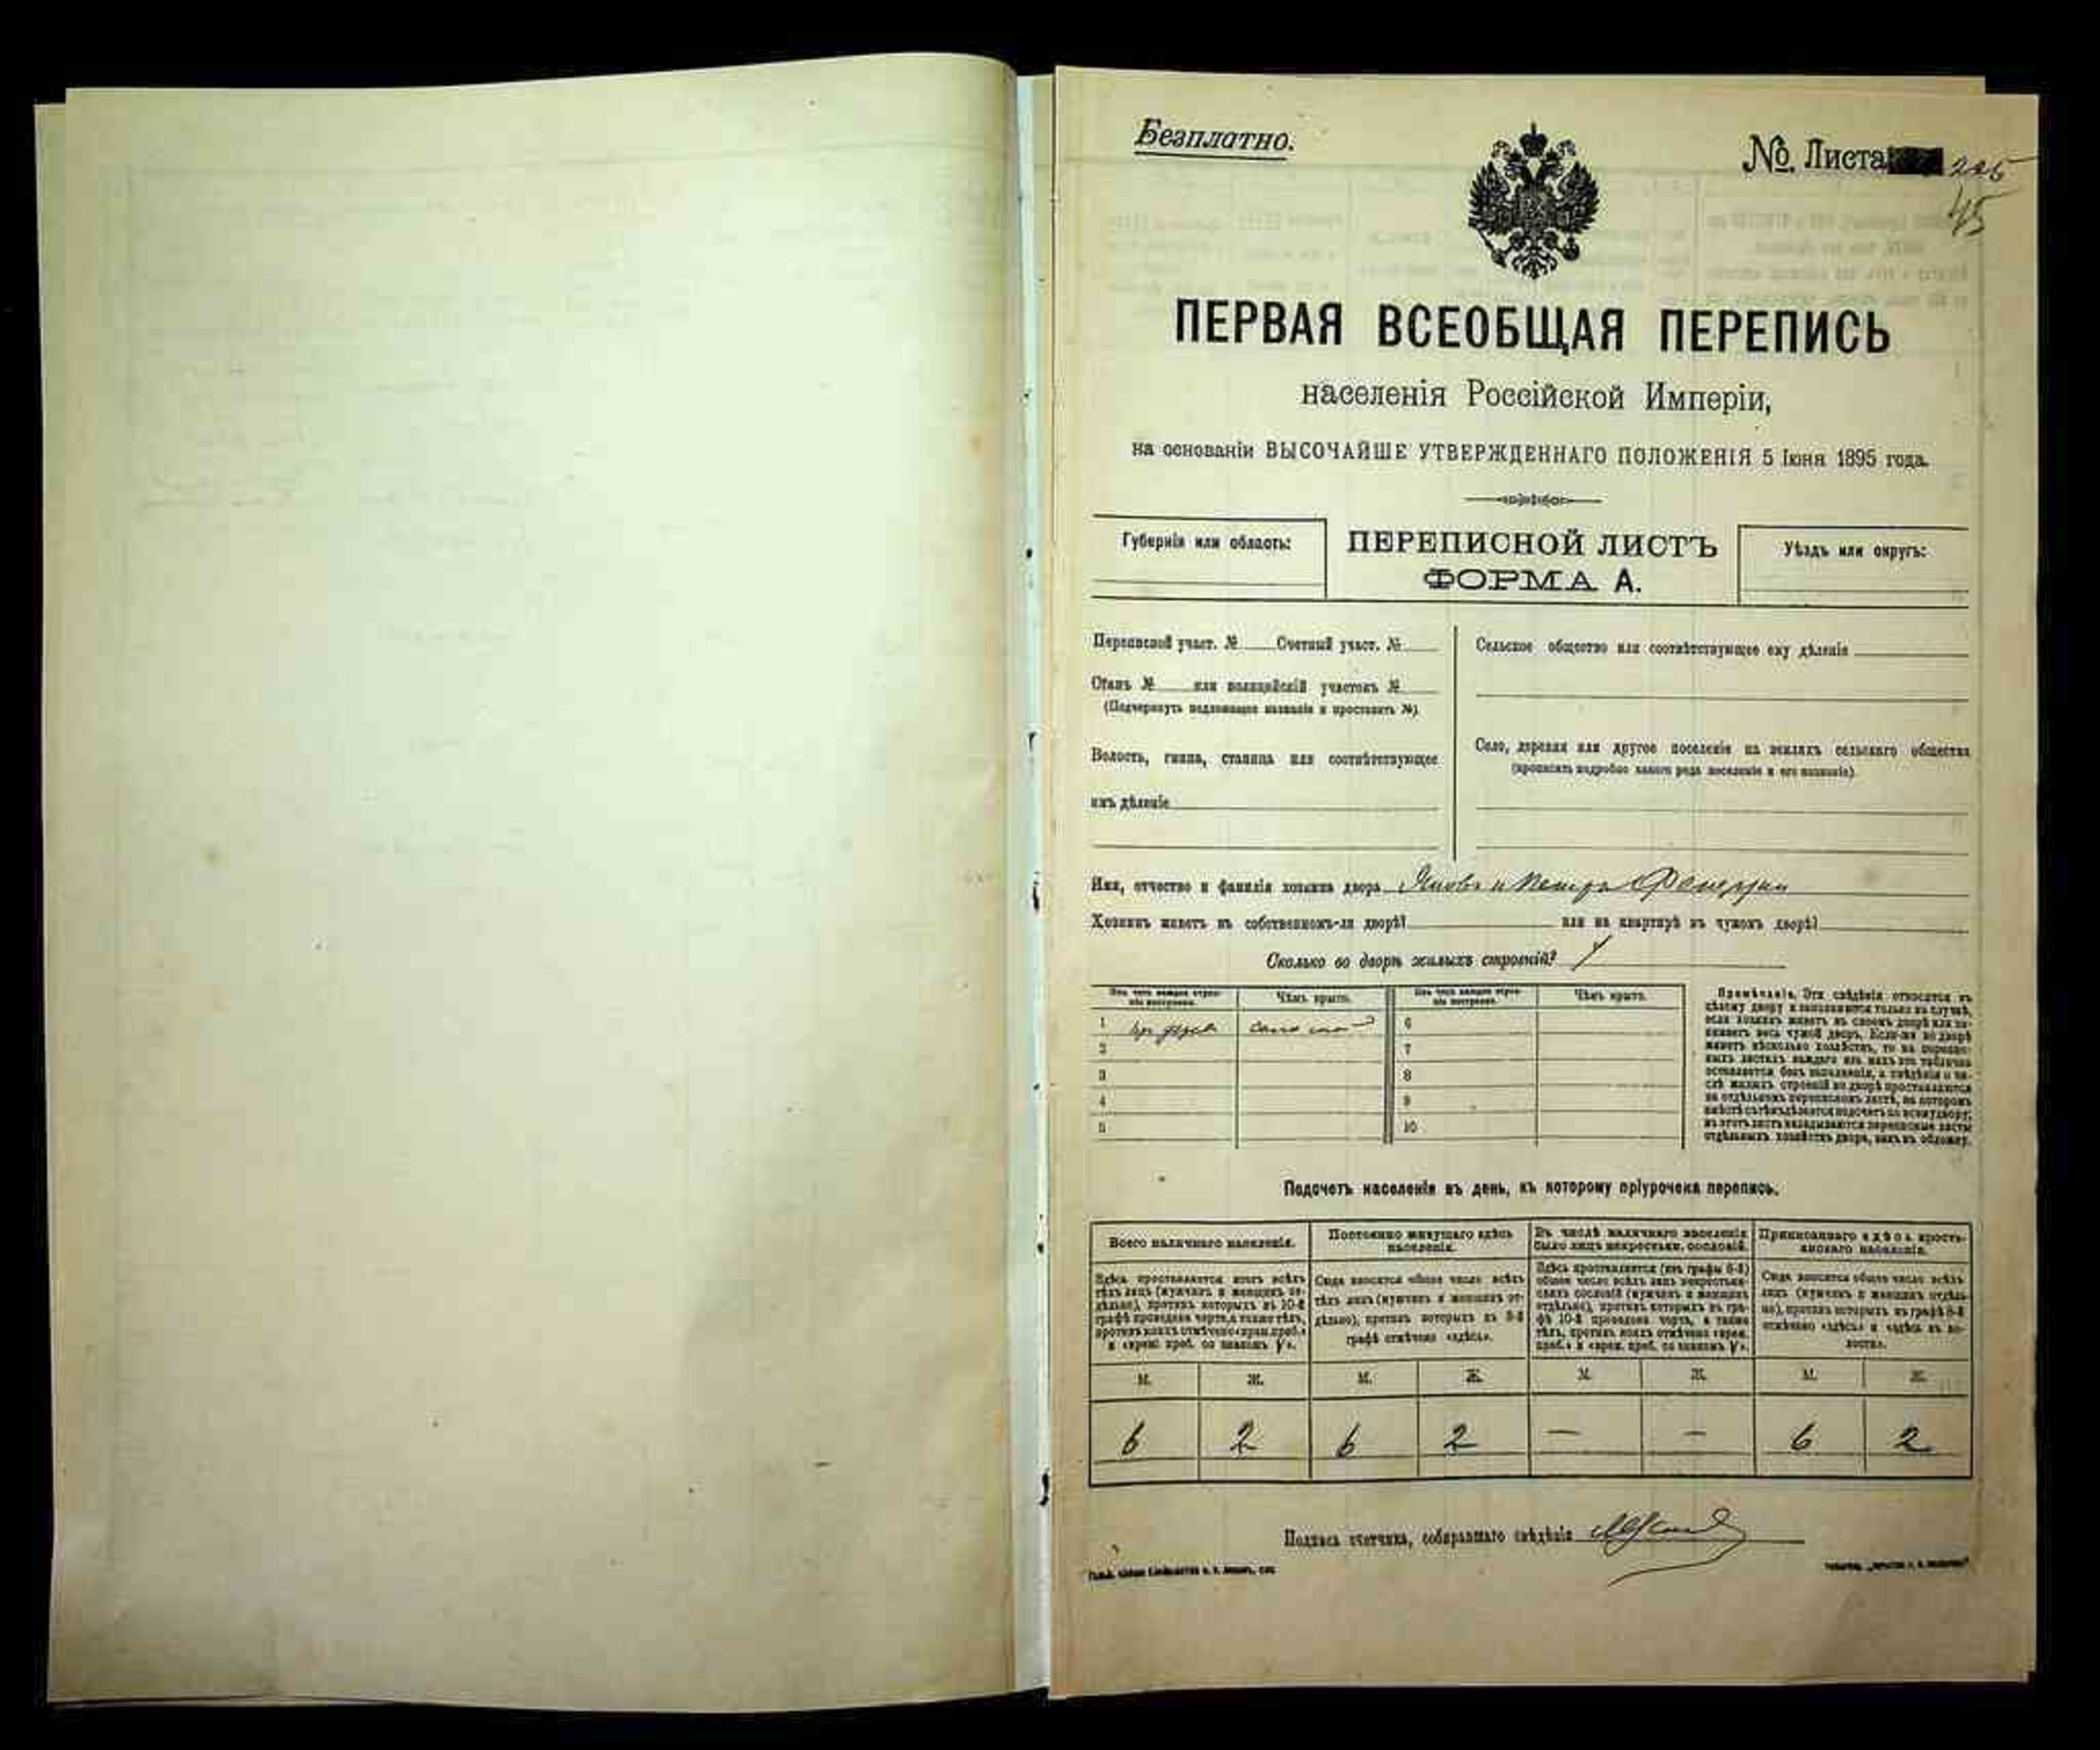 Безплатно.
№ Листа
45
ПЕРВАЯ ВСЕОБЩАЯ ПЕРЕПИСЬ
населенія Россійской Имперіи,
на основаніи ВЫСОЧАЙШЕ УТВЕРЖДЕННАГО ПОЛОЖЕНІЯ 5 Іюня 1895 года.
Губернія или область:
ПЕРЕПИСНОЙ ЛИСТЪ
ФОРМА А.
Уѣздъ или округъ:
Переписной участ. № Счетный участ. №
Станъ № или полицейскій участокъ №
(Подчеркнуть подлежащее названіе и проставить №)
Волость, гмина, станица или соотвѣтствующее
имъ дѣленіе
Сельское общество или соотвѣтствующее ему дѣленіе
Село, деревня или другое поселеніе на земляхъ сельскаго общества
(прописать подробно какого рода поселеніе и его названіе).
Имя, отчество и фамилія хозяина двора
Хозяинъ живетъ въ собственномъ-ли дворѣ? или на квартирѣ въ чужомъ дворѣ?
Сколько во дворѣ жилыхъ строеній? 1
Изъ чего каждое строеніе построено. Чѣмъ крыто. Изъ чего каждое строеніе построено. Чѣмъ крыто.
1 6
2 7
3 8
4 9
5 10
Примѣчаніе. Эти свѣдѣнія относятся къ
цѣлому двору и заполняются только въ случаѣ,
если хозяинъ живетъ въ своемъ дворѣ или за-
нимаетъ весь чужой дворъ. Если-же во дворѣ
живетъ нѣсколько хозяйствъ, то на перепис-
ныхъ листахъ каждаго изъ нихъ эта табличка
оставляется безъ заполненія, а свѣдѣнія о чи-
слѣ жилыхъ строеній во дворѣ проставляются
на отдѣльномъ переписномъ листѣ, на которомъ
вмѣстѣ съ тѣмъ дѣлается подсчетъ по всему двору;
въ этотъ листъ вкладываются переписные листы
отдѣльныхъ хозяйствъ двора, какъ въ обложку.
Подсчетъ населенія въ день, къ которому пріурочена перепись.
Всего наличнаго населенія.
Постоянно живущаго здѣсь
населенія.
Въ числѣ наличнаго населенія
было лицъ некрестьян. сословій.
Приписаннаго здѣсь кресть-
янскаго населенія.
Здѣсь проставляется итогъ всѣхъ
тѣхъ лицъ (мужчинъ и женщинъ от-
дѣльно), противъ которыхъ въ 10-й
графѣ проведена черта, а также тѣхъ,
противъ коихъ отмѣчено «врем. преб.»
и «врем. преб. со знакомъ V».
Сюда вносится общее число всѣхъ
тѣхъ лицъ (мужчинъ и женщинъ от-
дѣльно), противъ которыхъ въ 9-й
графѣ отмѣчено «здѣсь».
Здѣсь проставляется (изъ графы 6-й)
общее число всѣхъ лицъ некрестьян-
скихъ сословій (мужчинъ и женщинъ
отдѣльно), противъ которыхъ въ гра-
фѣ 10-й проведена черта, а также
тѣхъ, противъ коихъ отмѣчено «врем.
преб.» и «врем. преб. со знакомъ V».
Сюда вносится общее число всѣхъ
лицъ (мужчинъ и женщинъ отдѣль-
но), противъ которыхъ въ графѣ 8-й
отмѣчено «здѣсь» и «здѣсь въ во-
лости».
М. Ж. М. Ж. М. Ж. М. Ж.
6 2 6 2 — — 6 2
Подпись счетчика, собиравшаго свѣдѣнія